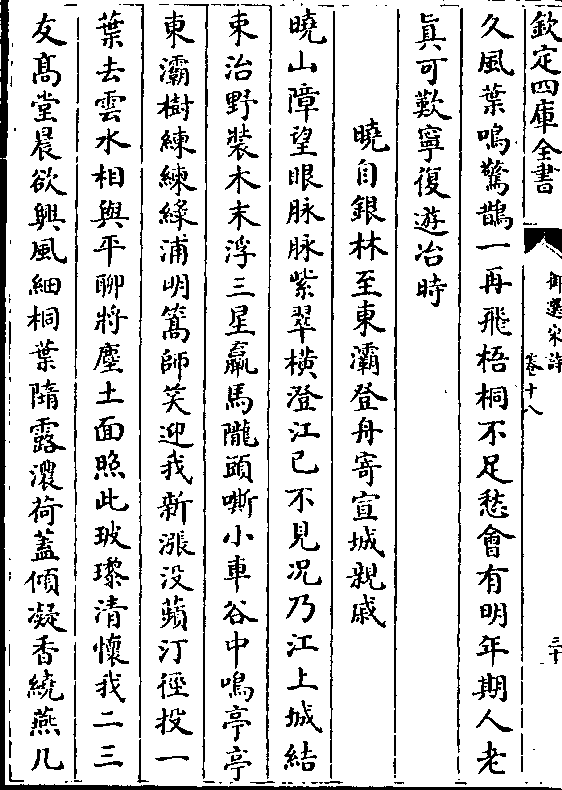 欽定四庫全書
御選宋詩
卷十八
三十
久風葉鳴驚鵲一再飛梧桐不足愁會有明年期人老
真可歎寧復遊冶時
曉自銀林至東灞登舟寄宣城親戚
曉山障望眼脉脉紫翠橫澄江已不見况乃江上城結
束治野裝木末浮三星羸馬隴頭嘶小車谷中鳴亭亭
東灞樹練練綘浦明篙師笑迎我新漲没蘋汀徑投一
葉去雲水相與平聊將塵土面照此玻瓈清懷我二三
友髙堂晨欲興風細桐葉隋露濃荷蓋傾凝香繞燕几